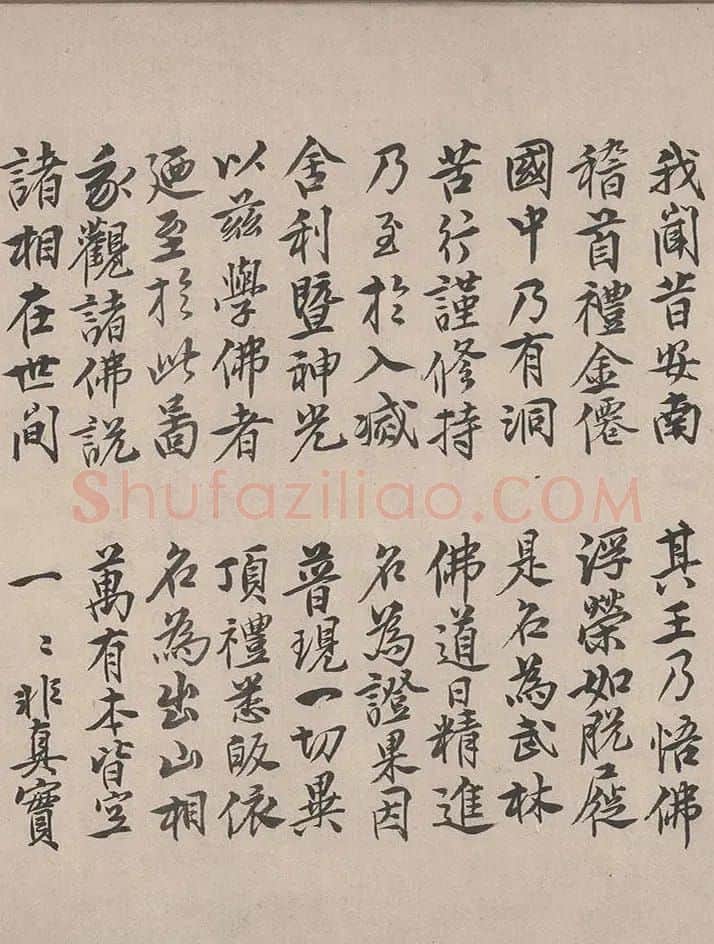 我聞昔安南 其王乃悟佛
稽首禮金僊 浮榮如脫屣
國中乃有洞 是名為武林
苦行謹修持 佛道日精進
乃至於入滅 名為證果因
舍利暨神光 普現一切異
以茲學佛者 頂禮悉皈依
廼至於此啚 名為出山相
我觀諸佛說 萬有本皆空
諸相在世間 一〻非真實
Shufaziliao.COM